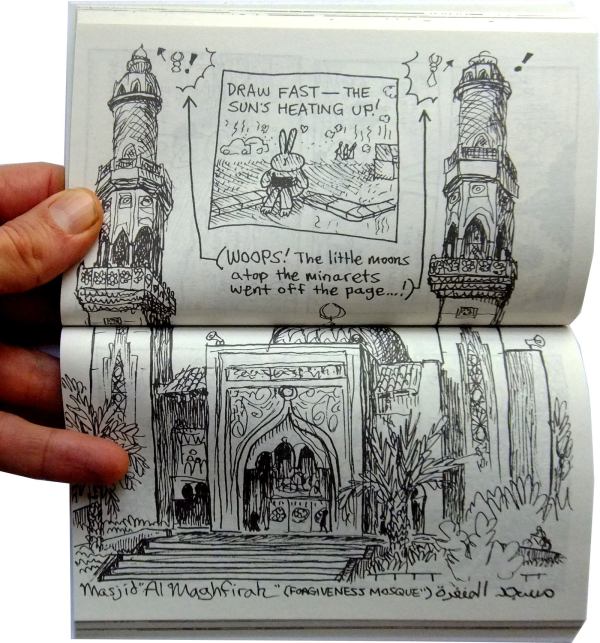 !
!
DRAW FAST—THE
SUN'S HEATING UP!
(WOOPS! The little moons
atop the minarets
went off the page...!)
Masjid "Al Maghfirah" (FORGIVENESS MOSQUE") مسجد المغفرة